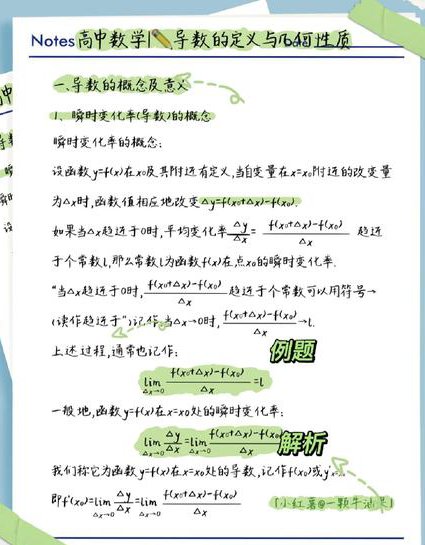 Notes 高中数学 导数的定义与几何性质
一、导数的概念及意义
1、瞬时变化率(导数)的概念
瞬时变化率的概念:
设函数y=f(x)在x₀及其附近有定义,当自变量在x=x₀附近的改变量
为△x时,函数值相应地改变△y=f(x₀+△x)-f(x₀).
如果当△x趋近于0时,平均变化率 △y/△x = f(x₀+△x)-f(x₀)/△x 趋近
于个常数l,那么常数l为函数f(x)在点x₀的瞬时变化率.
"当△x趋近于0时, f(x₀+△x)-f(x₀)/△x 趋近于个常数可以用符号→
(读作趋近于")记作:当△x→0时, f(x₀+△x)-f(x₀)/△x →l.
上述过程,通常也记作:
例题
lim △x→0 f(x₀+△x)-f(x₀)/△x =l
一般地,函数y=f(x)在x=x₀处的瞬时变化率:
lim △x→0 △y/△x = lim △x→0 f(x₀+△x)-f(x₀)/△x
解析
我们称它为函数y=f(x)在x=x₀处的导数,记作f(x₀)或y'
即f'(x₀)= lim △x→0 △y/△x = lim △x→0 f(x₀+△x)-f(x₀)/△x
(小红薯@一颗牛油果)